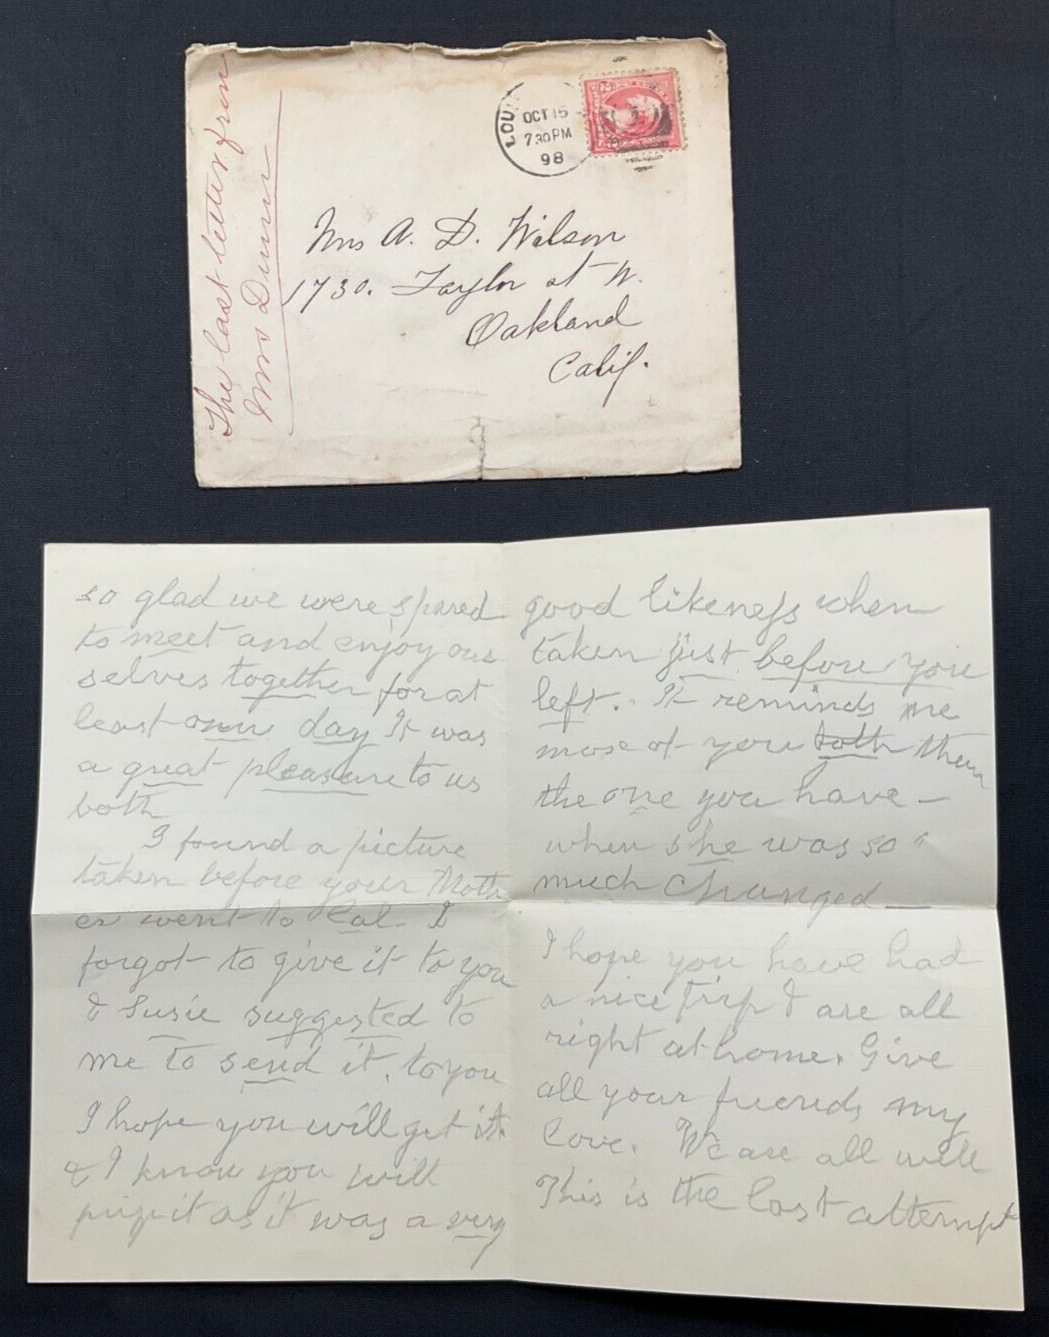 The last letter from
Mrs Dunn
LOU
OCT 15
7 30 PM
98
Mrs A. D. Wilson
1730. Taylor st W.
Oakland
Calif.
so glad we were spared
to meet and enjoy our
selves together for at
least one day It was
a great pleasure to us
both
I found a picture
taken before your Moth
er went to Cal I
forgot to give it to you
& Susie suggested to
me to send it, to you
I hope you will get it.
& I know you will
prize it as it was a very
good likeness when
taken just before you
left. It reminds me
more of you both then
the one you have —
when she was so
much changed —
I hope you have had
a nice trip & are all
right at home. Give
all your friends my
love. We are all well
This is the last attempt